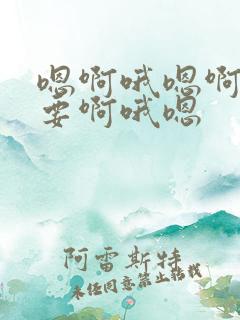 嗯啊哦嗯啊
要啊哦嗯
阿雷斯特
未经同意禁止转载